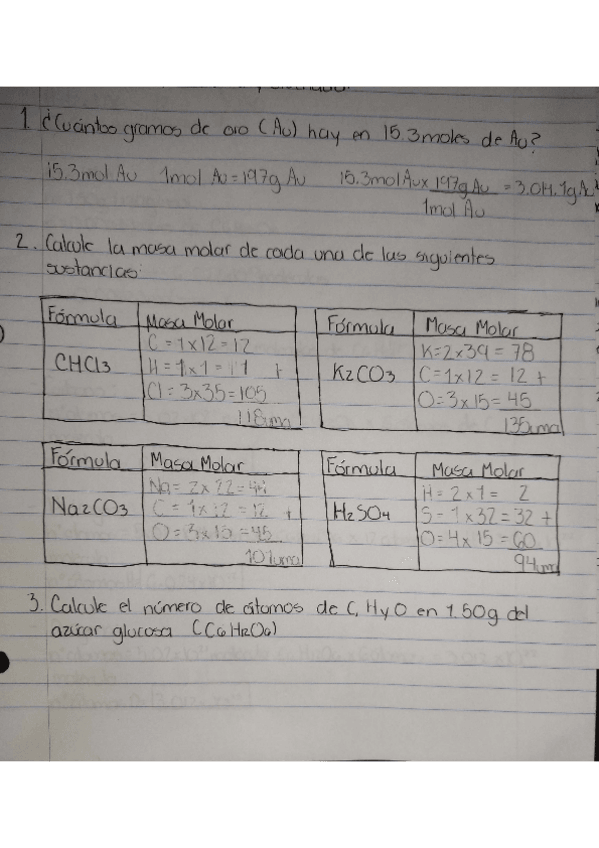 1. ¿Cuántos gramos de oro (Au) hay en 15.3 moles de Au?
15.3mol Au 1mol Au = 197g Au 15.3mol Au x 197g Au = 3.014.1g Au
1mol Au
2. Calcule la masa molar de cada una de las siguientes
sustancias:
Fórmula Masa Molar
CHCl3
C = 1x12 = 12
H = 1x1 = 1 +
Cl = 3x35 = 105
118uma
Fórmula Masa Molar
K2CO3
K = 2x39 = 78
C = 1x12 = 12 +
O = 3x15 = 45
135uma
Fórmula Masa Molar
Na2CO3
Na = 2x22 = 44
C = 1x12 = 12 +
O = 3x15 = 45
101uma
Fórmula Masa Molar
H2SO4
H = 2x1 = 2
S = 1x32 = 32 +
O = 4x15 = 60
94uma
3. Calcule el número de átomos de C, H y O en 1.50g del
azúcar glucosa (C6H12O6)